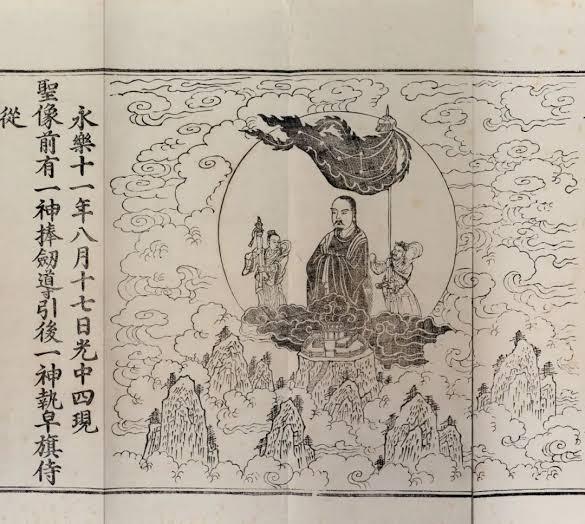 永樂十一年八月十七日光中四現
聖像前有一神捧劔導引後一神執皁旗侍
從